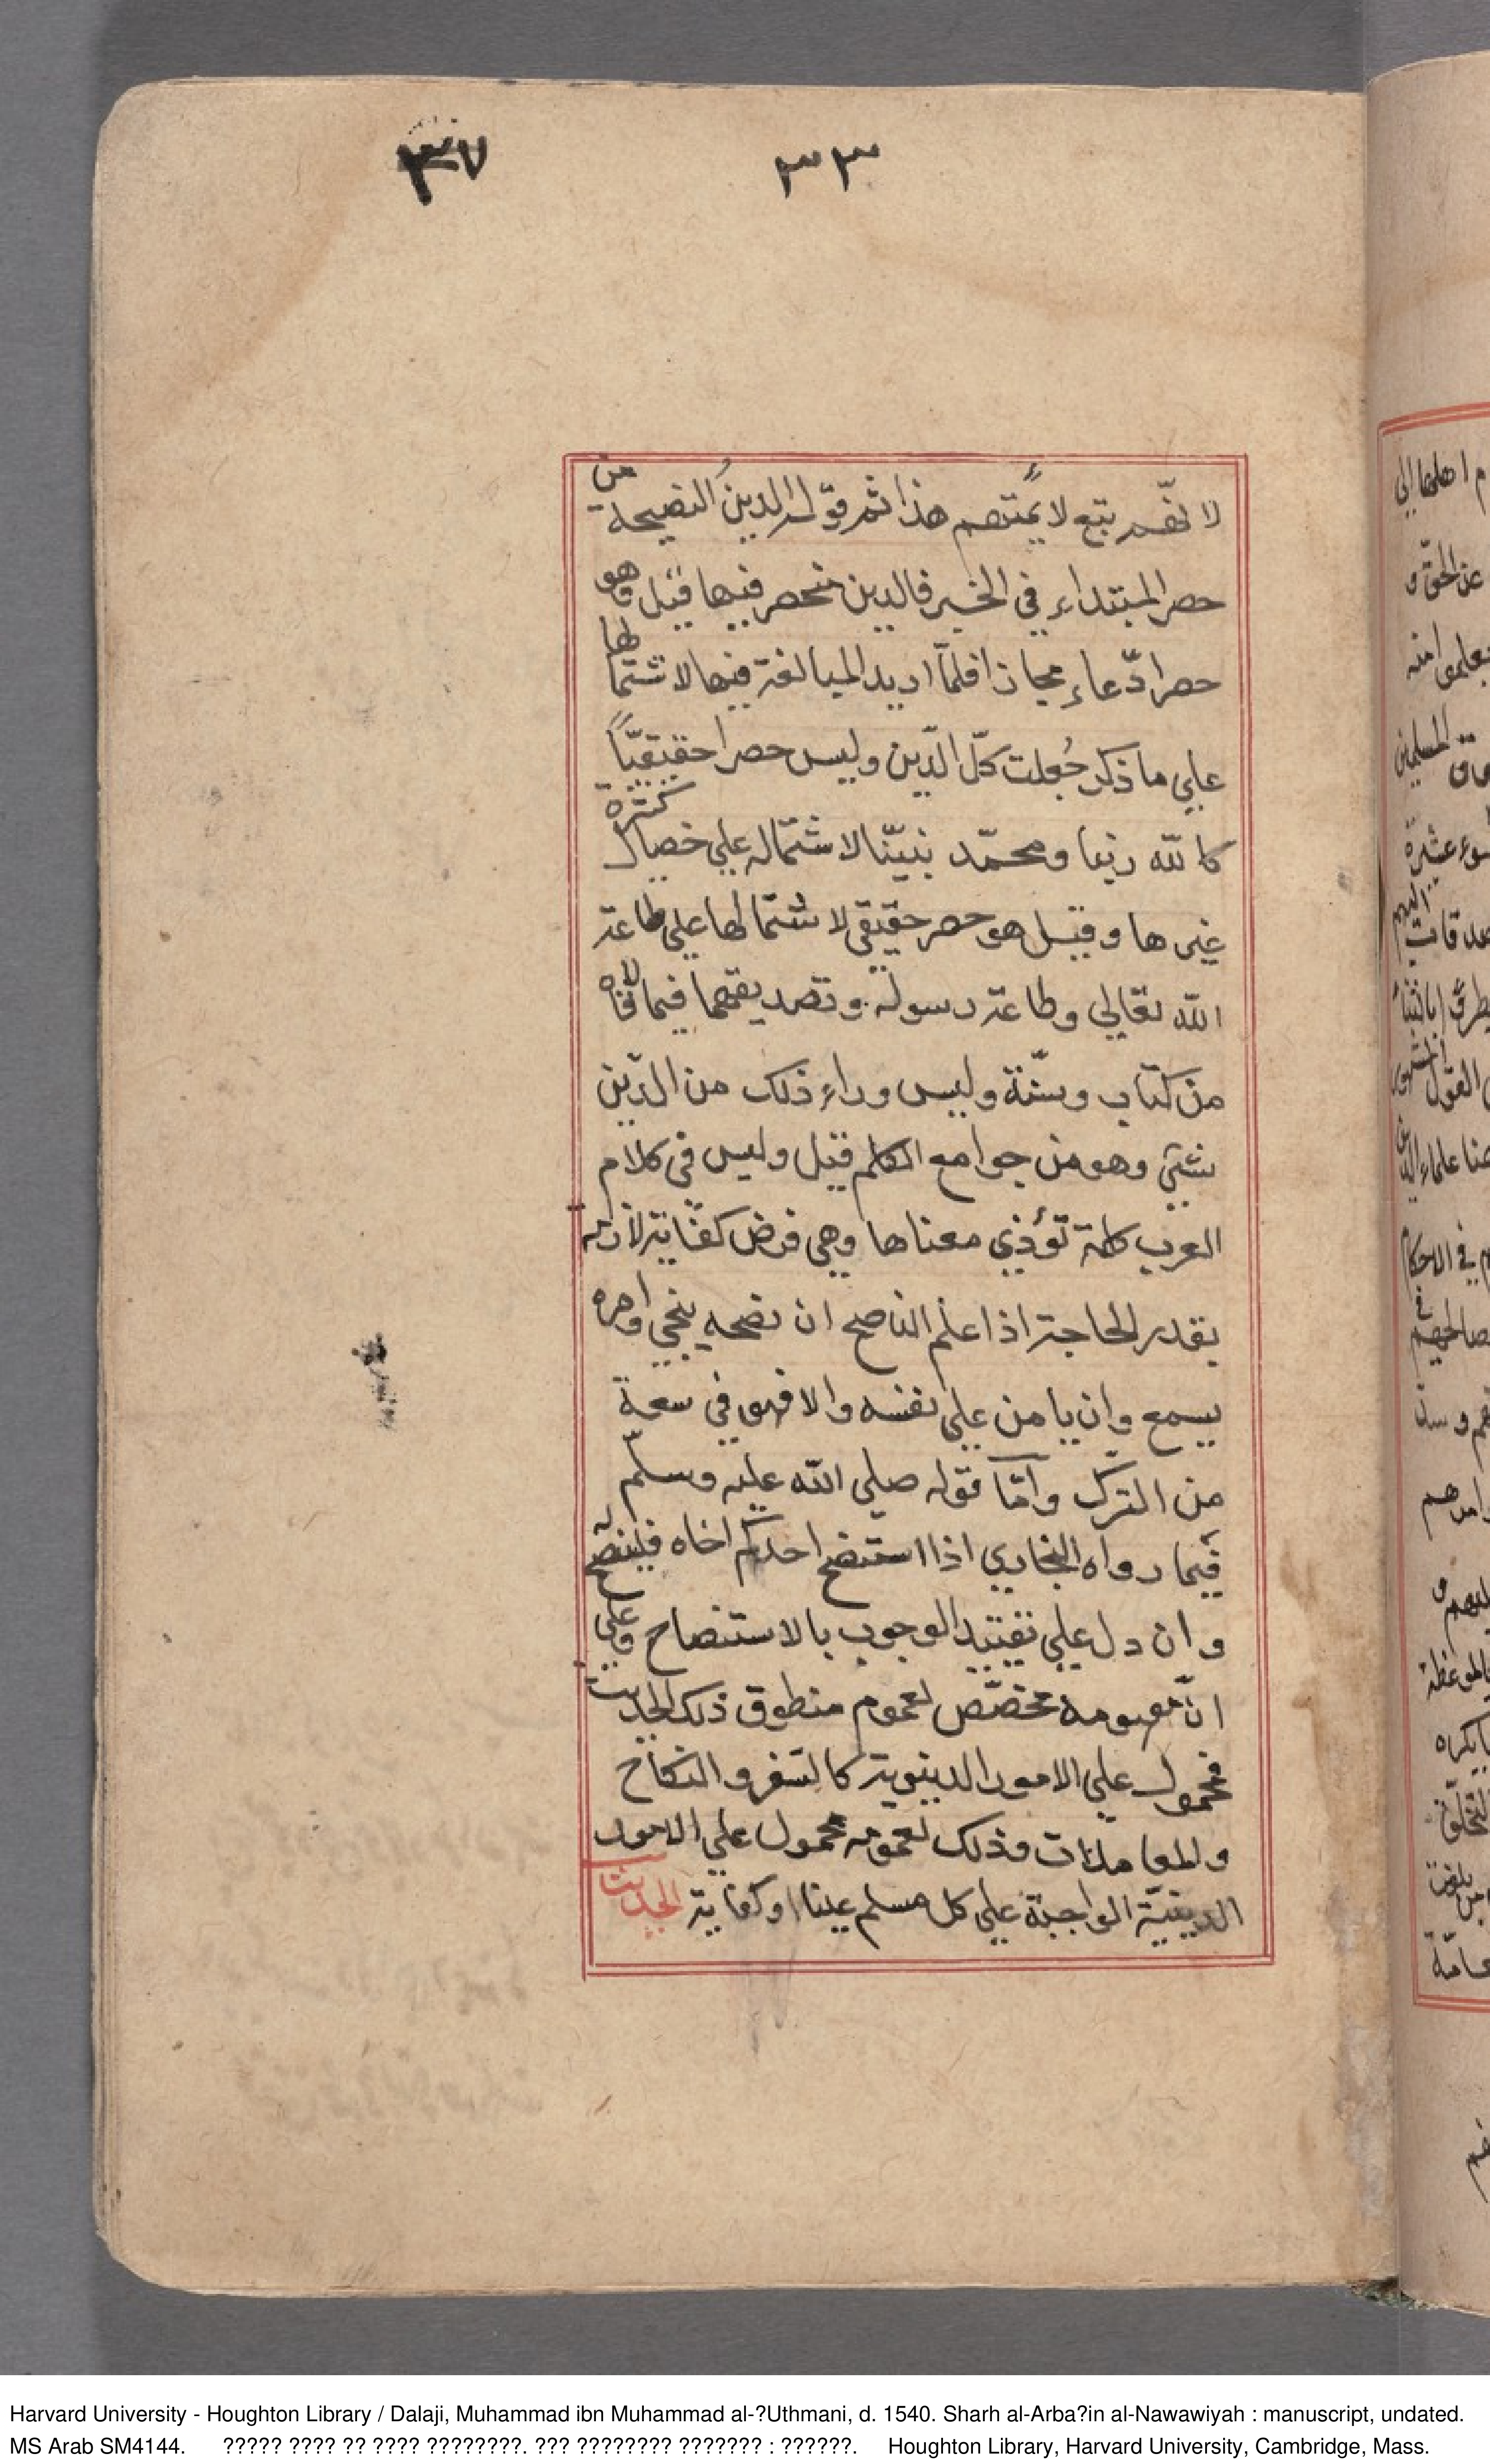 ٣٣
٣٧
لانهم تبع لا يمتهم هذا ثم قوله الدين النصيحة من
حصر المبتداء في الخبر فالدين منحصر فيها قيل وهو
حصر ادّعاء مجازا فلمّا اريد المبالغة فيها لاشتمالها
علي ما ذكر جُعلت كلّ الدّين وليس حصرا حقيقيّاً
كالله ربنا ومحمّد نبيّنا لاشتماله علي خصال كثيرة
غيرها وقيل هو حصر حقيقي لاشتمالها علي طاعة
الله تعالي وطاعة رسوله وتصديقهما فيما قالاه
من كتاب وسنّة وليس وراء ذلك من الدّين
شئ وهو من جوامع الكلم قيل وليس في كلام
العرب كلمة تؤدي معناها وهي فرض كفاية لازمة
بقدر الحاجة اذا علم الناصح ان نصحه ينجي وامره
يسمع وان يامن علي نفسه والا فهو في سعة
من الترك وامّا قوله صلي الله عليه وسلّم
فيما رواه البخاري اذا استنصح احدكم اخاه فلينصح له
وان دل علي تقييد الوجوب بالاستنصاح وعلي
انّ مفهومه مخصّص لعموم منطوق ذلك الحديث
فمحمول علي الامور الدينوية كالسّفر والنكاح
والمعاملات وذلك لعمومه محمول علي الامور
الدينيّة الواجبة علي كل مسلم عينا او كفاية الحديث
Harvard University - Houghton Library / Dalaji, Muhammad ibn Muhammad al-?Uthmani, d. 1540. Sharh al-Arba?in al-Nawawiyah : manuscript, undated.
MS Arab SM4144. ????? ???? ?? ???? ????????. ??? ???????? ??????? : ??????. Houghton Library, Harvard University, Cambridge, Mass.